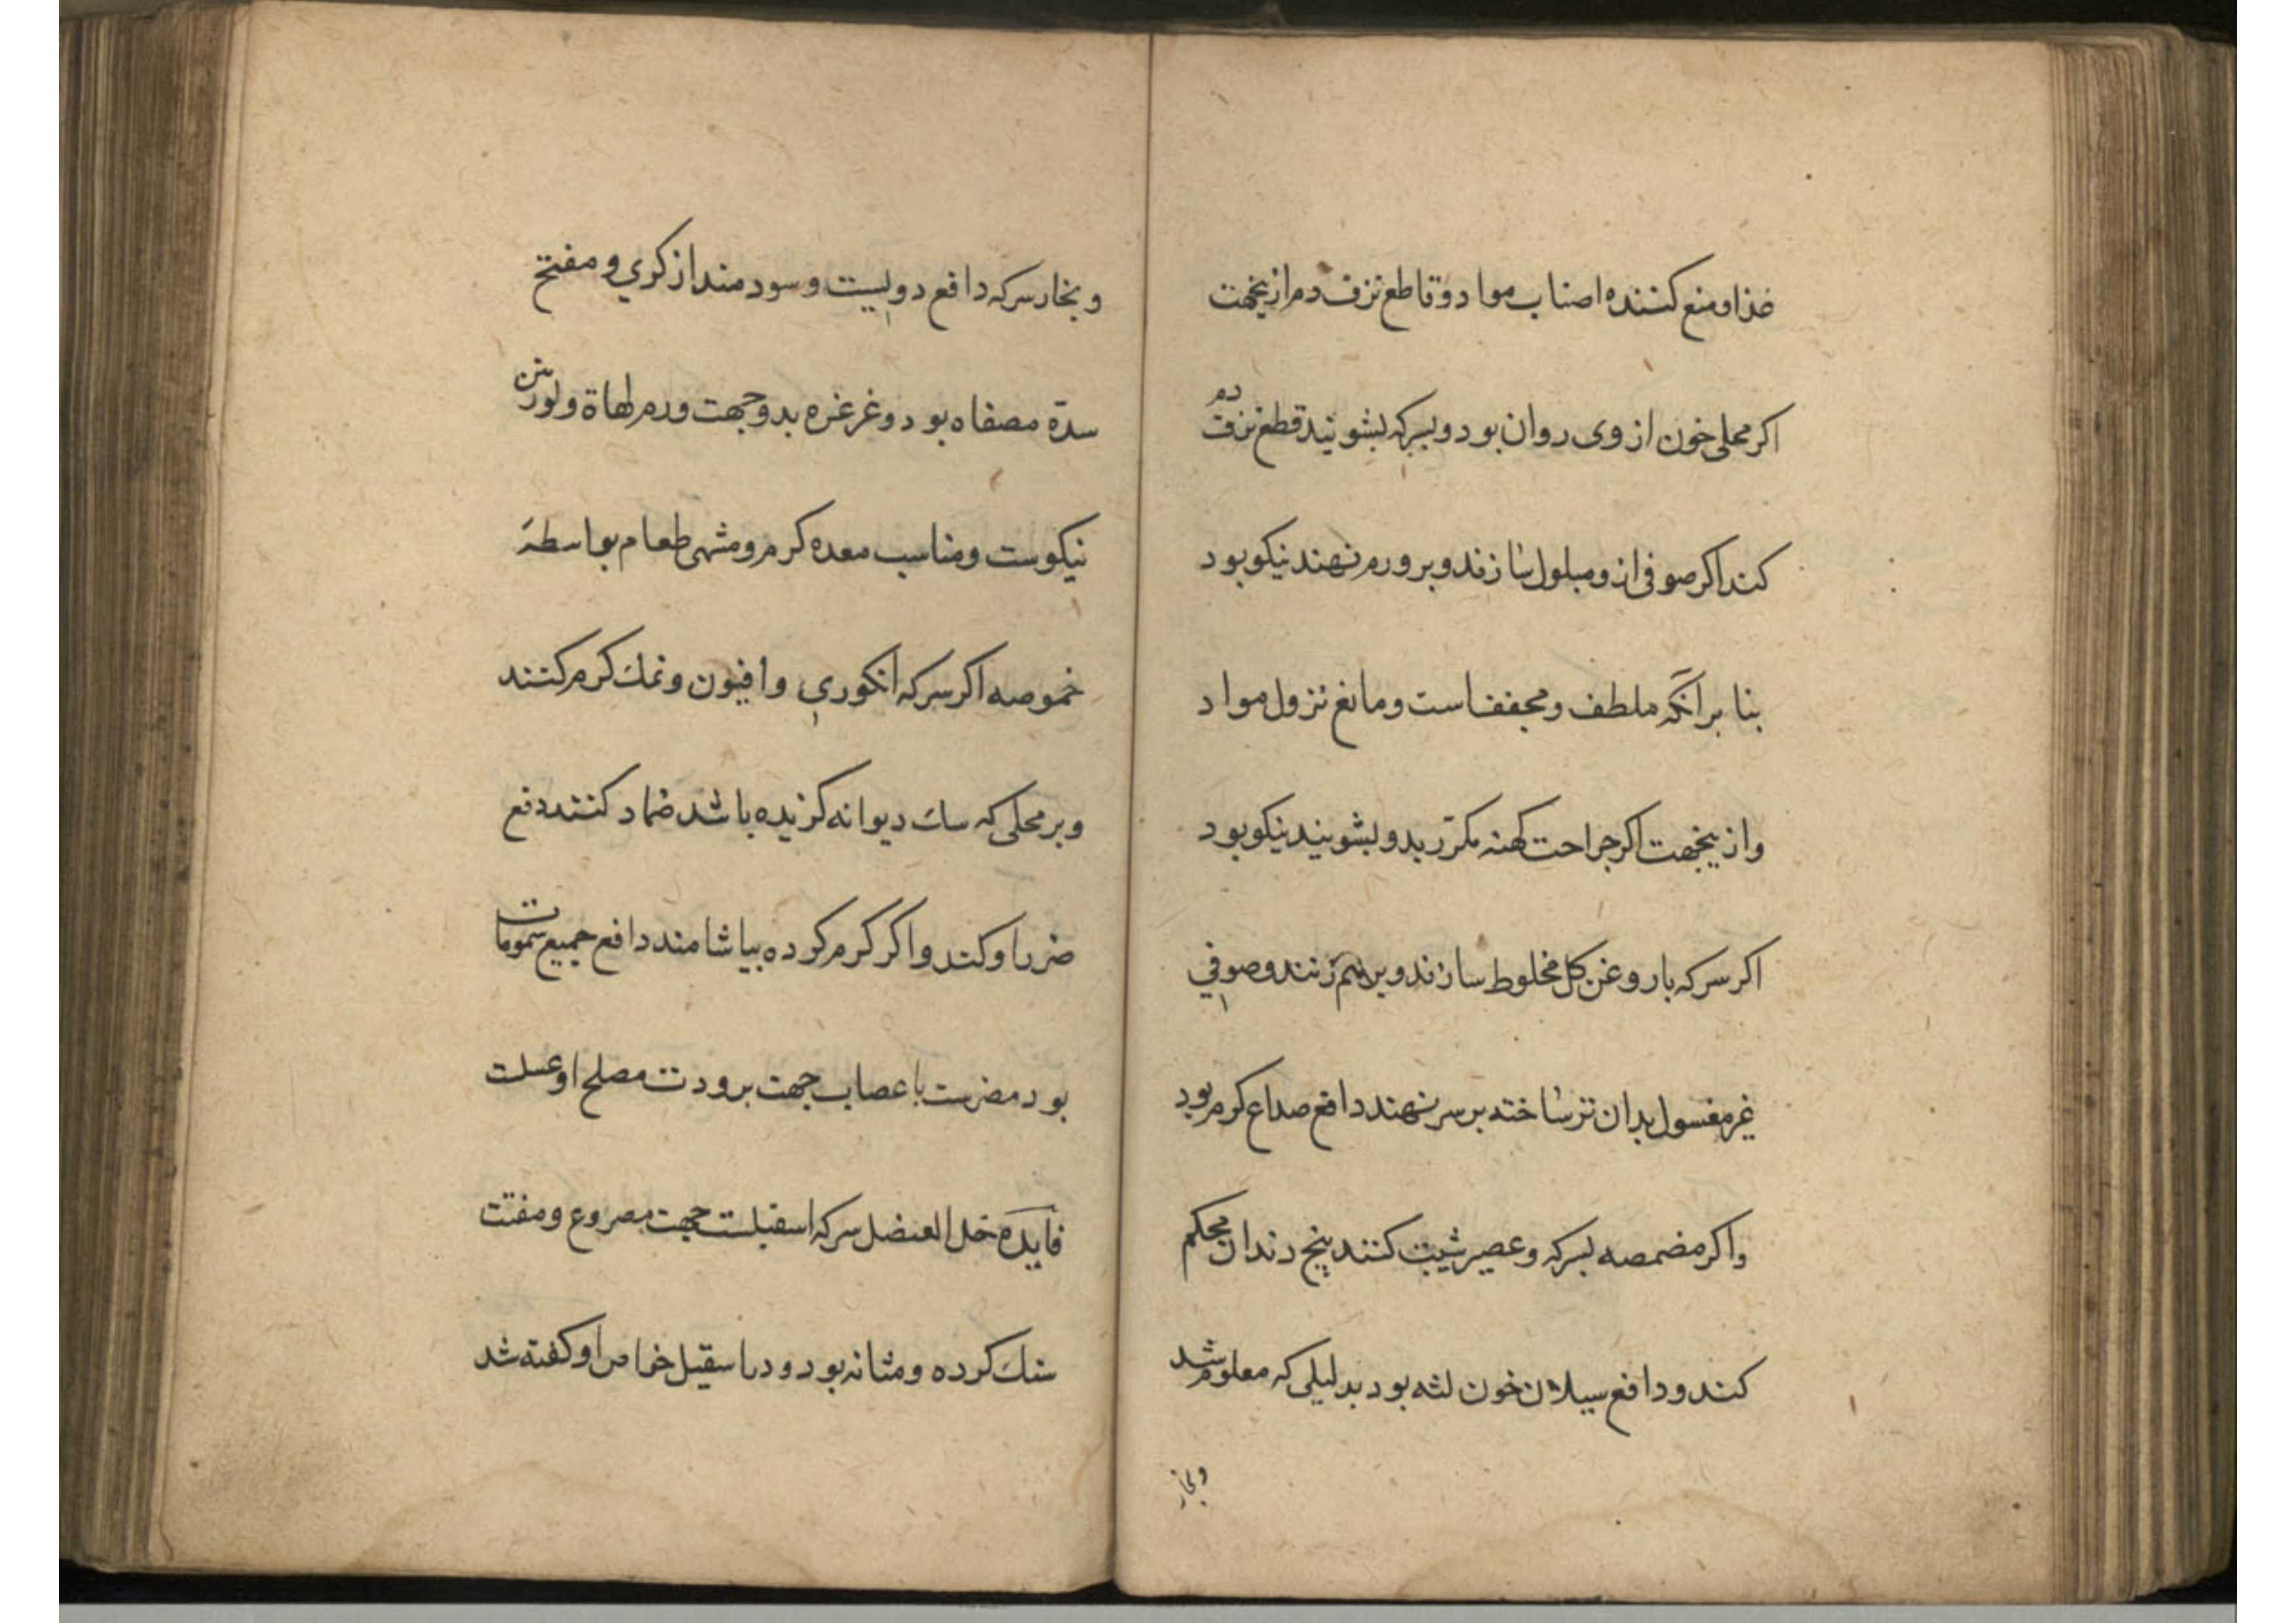 غذا و منع کننده اصناب مواد و قاطع نزف دم ازینجهت
اکر محلی خون از وی روان بود و بسرکه بشویند قطع نزف دم
کند اکر صوفی ازو مبلول سازند و بر ورم نهند نیکو بود
بنا بر آنکه ملطف و مجففست و مانع نزول مواد
و ازینجهت اکر جراحت کهنه مکرّر بدو بشویند نیکو بود
اکر سرکه با روغن کل مخلوط سازند و برهم زنند و صوفی
غیر مغسول بدان تر ساخته بر سر نهند دافع صداع کرم بود
و اکر مضمضه بسرکه و عصیر شبت کنند بیخ دندان محکم
کند و دافع سیلان خون لثه بود بدلیلی که معلوم شد
و بخار
و بخار سرکه دافع دویست و سودمند از کری و مفتح
سدّه مصفاه بود و غرغره بدو جهت ورم لهاة و لوزتین
نیکوست و مناسب معده کرم و مشهی طعام بواسطهٔ
خموصه اکر سرکه انکوری و افیون و نمک کرم کنند
و بر محلی که سک دیوانه کزیده باشد ضماد کنند دفع
ضرر او کند و اکر کرم کرده بیاشامند دافع جمیع سمومات
بود مضرست باعصاب جهت برودت مصلح او عسلت
فایده خل العنصل سرکه اسقیلست جهت مصروع و مفتت
سنک کرده و مثانه بود و در اسقیل خواص او کفته شد